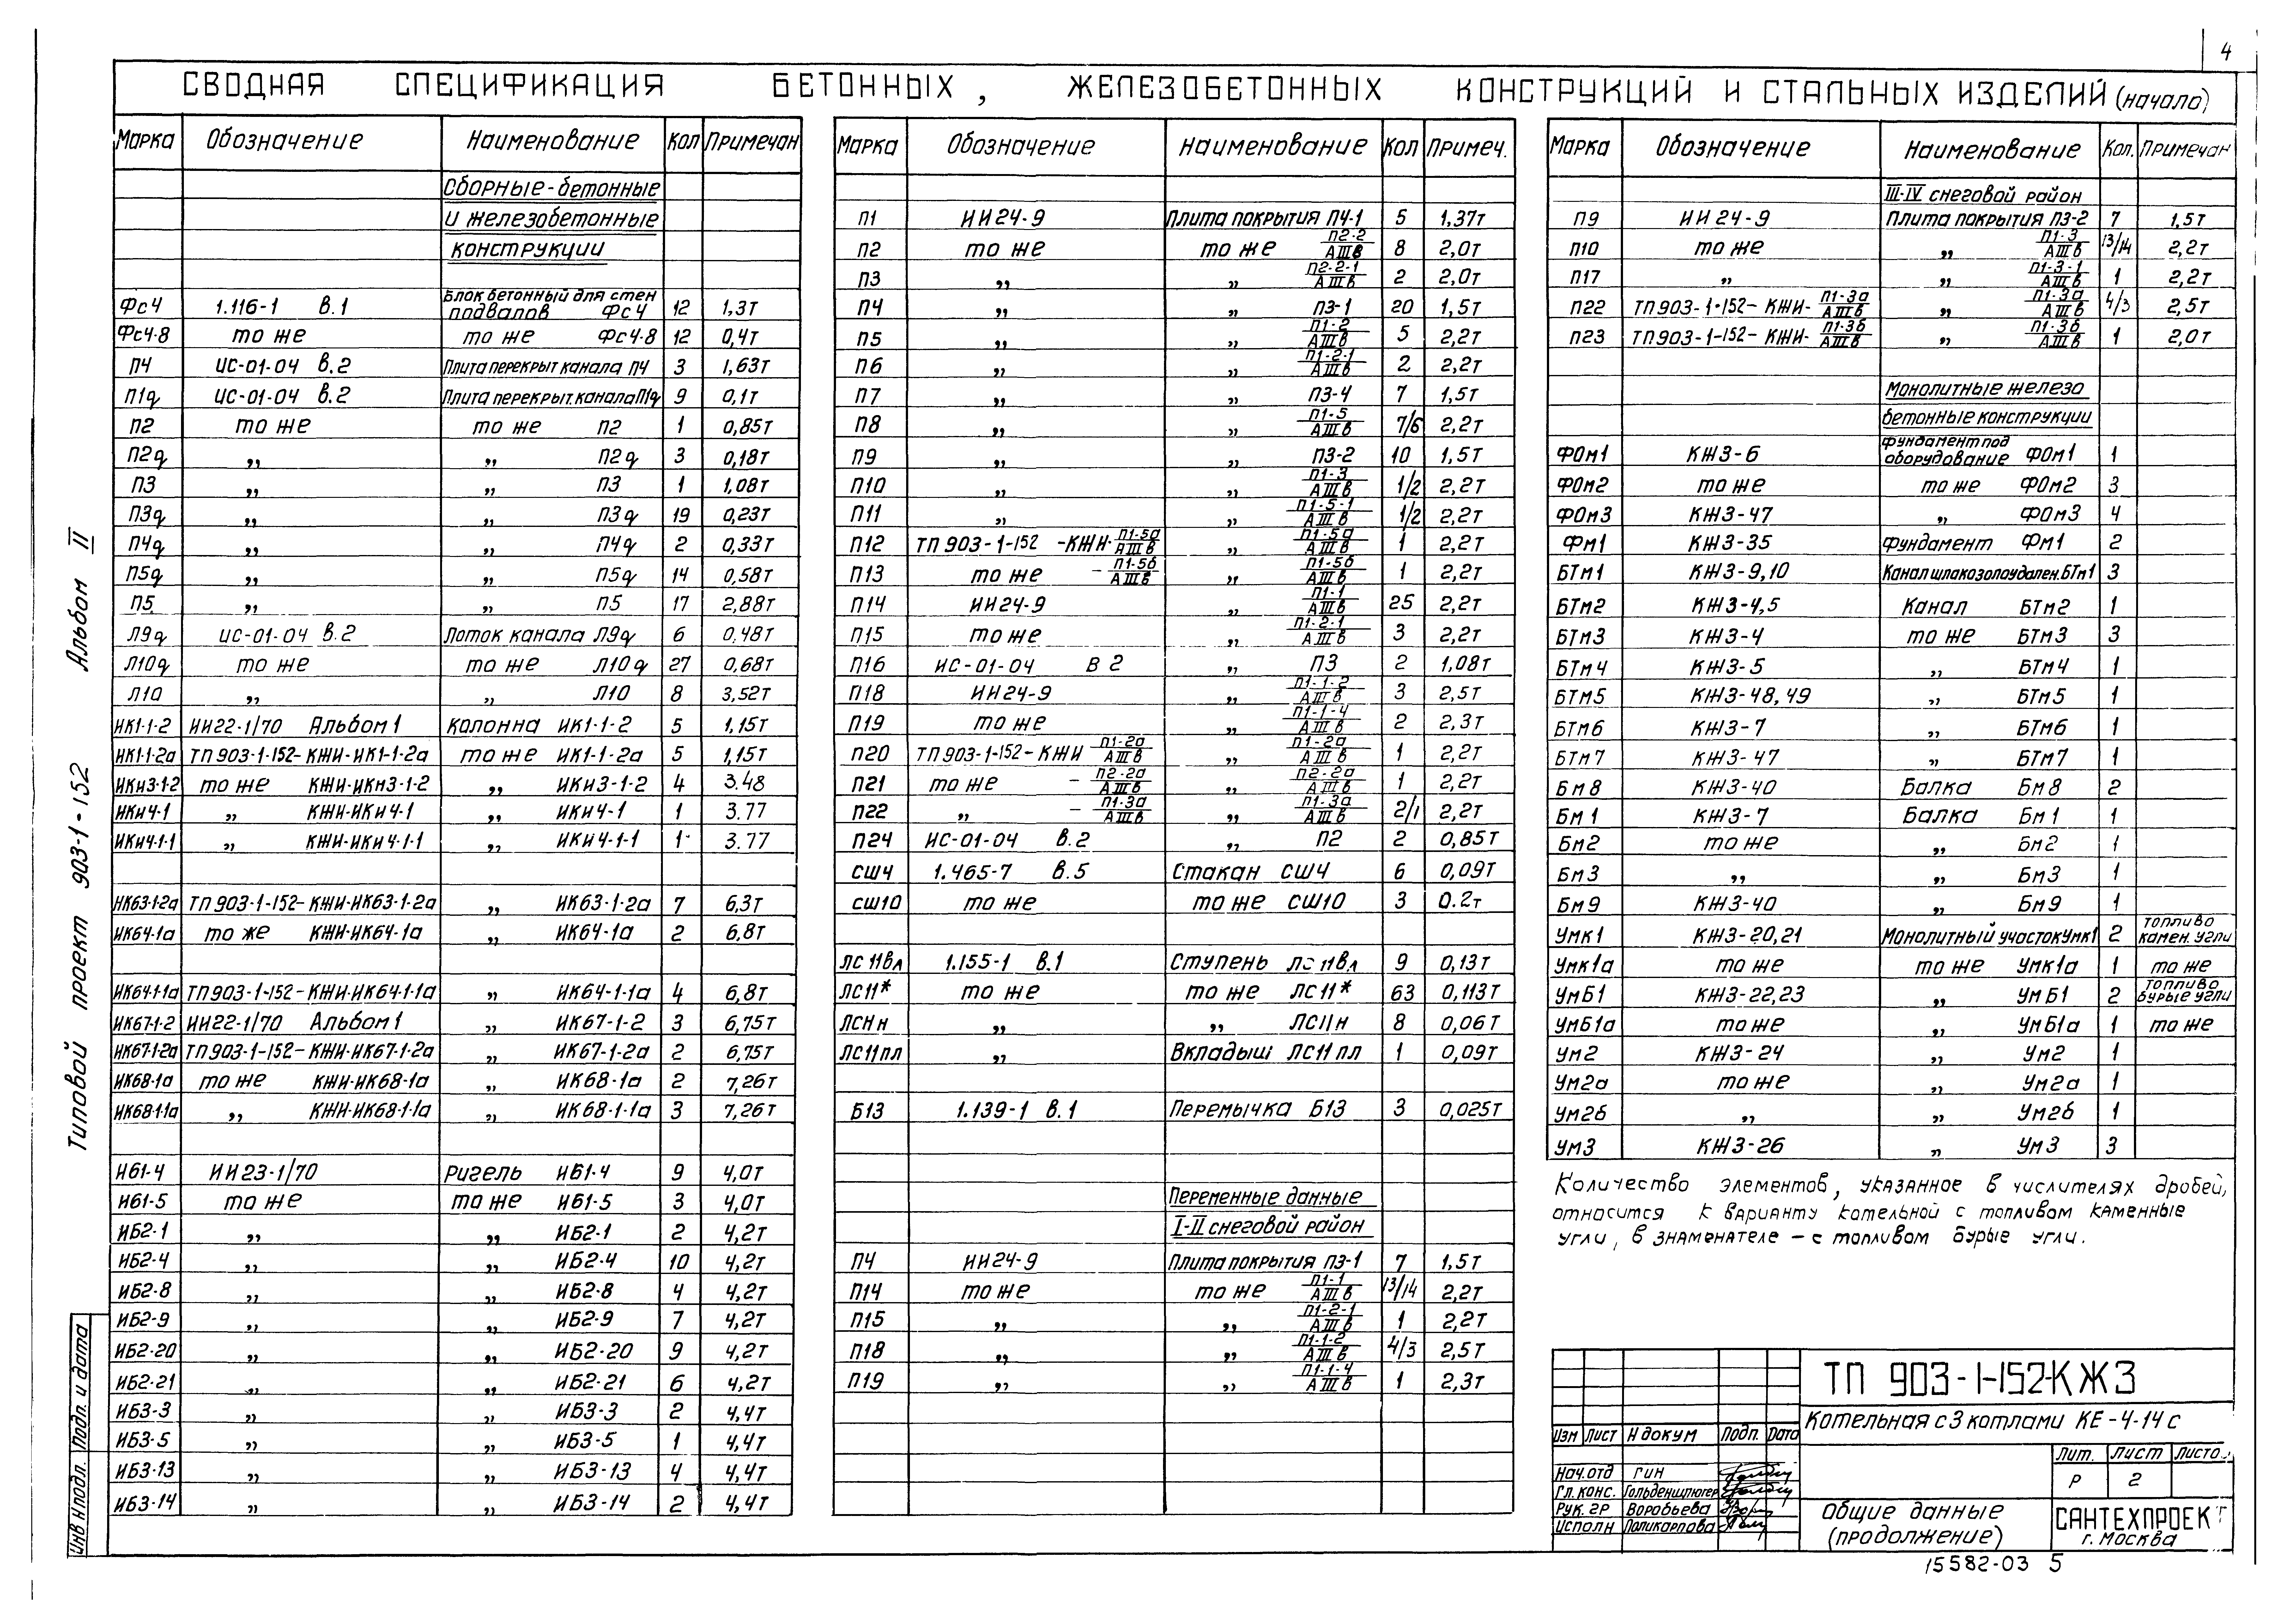 4
СВОДНАЯ СПЕЦИФИКАЦИЯ БЕТОННЫХ, ЖЕЛЕЗОБЕТОННЫХ КОНСТРУКЦИЙ И СТАЛЬНЫХ ИЗДЕЛИЙ (начало)
Марка Обозначение Наименование Кол Примечан
Сборные-бетонные
и железобетонные
конструкции
Фс4 1.116-1 в.1 Блок бетонный для стен подвалов Фс4 12 1,3т
Фс4-8 то же то же Фс4-8 12 0,4т
П4 ИС-01-04 в.2 Плита перекрыт канала П4 3 1,63т
П1д ИС-01-04 в.2 Плита перекрыт. канала П1д 9 0,1т
П2 то же то же П2 1 0,85т
П2д „ „ П2д 3 0,18т
П3 „ „ П3 1 1,08т
П3д „ „ П3д 19 0,23т
П4д „ „ П4д 2 0,33т
П5д „ „ П5д 14 0,58т
П5 „ „ П5 17 2,88т
Л9д ИС-01-04 в.2 Лоток канала Л9д 6 0,48т
Л10д то же то же Л10д 27 0,68т
Л10 „ „ Л10 8 3,52т
ИК1-1-2 ИИ22-1/70 Альбом 1 Колонна ИК1-1-2 5 1,15т
ИК1-1-2а ТП903-1-152-КЖИ-ИК1-1-2а то же ИК1-1-2а 5 1,15т
ИКи3-1-2 то же КЖИ-ИКи3-1-2 „ ИКи3-1-2 4 3.48
ИКи4-1 „ КЖИ-ИКи4-1 „ ИКи4-1 1 3.77
ИКи4-1-1 „ КЖИ-ИКи4-1-1 „ ИКи4-1-1 1 3.77
ИК63-1-2а ТП903-1-152-КЖИ-ИК63-1-2а „ ИК63-1-2а 7 6,3т
ИК64-1а то же КЖИ-ИК64-1а „ ИК64-1а 2 6,8т
ИК64-1-1а ТП903-1-152-КЖИ-ИК64-1-1а „ ИК64-1-1а 4 6,8т
ИК67-1-2 ИИ22-1/70 Альбом 1 „ ИК67-1-2 3 6,75т
ИК67-1-2а ТП903-1-152-КЖИ-ИК67-1-2а „ ИК67-1-2а 2 6,75т
ИК68-1а то же КЖИ-ИК68-1а „ ИК68-1а 2 7,26т
ИК68-1-1а „ КЖИ-ИК68-1-1а „ ИК68-1-1а 3 7,26т
ИБ1-4 ИИ23-1/70 Ригель ИБ1-4 9 4,0т
ИБ1-5 то же то же ИБ1-5 3 4,0т
ИБ2-1 „ „ ИБ2-1 2 4,2т
ИБ2-4 „ „ ИБ2-4 10 4,2т
ИБ2-8 „ „ ИБ2-8 4 4,2т
ИБ2-9 „ „ ИБ2-9 7 4,2т
ИБ2-20 „ „ ИБ2-20 9 4,2т
ИБ2-21 „ „ ИБ2-21 6 4,2т
ИБ3-3 „ „ ИБ3-3 2 4,4т
ИБ3-5 „ „ ИБ3-5 1 4,4т
ИБ3-13 „ „ ИБ3-13 4 4,4т
ИБ3-14 „ „ ИБ3-14 2 4,4т
Марка Обозначение Наименование Кол Примеч.
П1 ИИ24-9 Плита покрытия П4-1 5 1,37т
П2 то же то же П2-2/АIIIв 8 2,0т
П3 „ „ П2-2-1/АIIIв 2 2,0т
П4 „ „ П3-1 20 1,5т
П5 „ „ П1-2/АIIIв 5 2,2т
П6 „ „ П1-2-1/АIIIв 2 2,2т
П7 „ „ П3-4 7 1,5т
П8 „ „ П1-5/АIIIв 7/6 2,2т
П9 „ „ П3-2 10 1,5т
П10 „ „ П1-3/АIIIв 1/2 2,2т
П11 „ „ П1-5-1/АIIIв 1/2 2,2т
П12 ТП903-1-152-КЖИ-П1-5а/АIIIв „ П1-5а/АIIIв 1 2,2т
П13 то же -П1-5б/АIIIв „ П1-5б/АIIIв 1 2,2т
П14 ИИ24-9 „ П1-1/АIIIв 25 2,2т
П15 то же „ П1-2-1/АIIIв 3 2,2т
П16 ИС-01-04 в 2 „ П3 2 1,08т
П18 ИИ24-9 „ П1-1-2/АIIIв 3 2,5т
П19 то же „ П1-1-4/АIIIв 2 2,3т
П20 ТП903-1-152-КЖИ П1-2а/АIIIв „ П1-2а/АIIIв 1 2,2т
П21 то же -П2-2а/АIIIв „ П2-2а/АIIIв 1 2,2т
П22 „ -П1-3а/АIIIв „ П1-3а/АIIIв 2/1 2,2т
П24 ИС-01-04 в.2 „ П2 2 0,85т
СШ4 1.465-7 в.5 Стакан СШ4 6 0,09т
СШ10 то же то же СШ10 3 0.2т
ЛС11вл 1.155-1 в.1 Ступень ЛС11вл 9 0,13т
ЛС11* то же то же ЛС11* 63 0,113т
ЛС11н „ „ ЛС11н 8 0,06т
ЛС11пл „ Вкладыш ЛС11пл 1 0,09т
Б13 1.139-1 в.1 Перемычка Б13 3 0,025т
Переменные данные
I-II снеговой район
П4 ИИ24-9 Плита покрытия П3-1 7 1,5т
П14 то же то же П1-1/АIIIв 13/14 2,2т
П15 „ „ П1-2-1/АIIIв 1 2,2т
П18 „ „ П1-1-2/АIIIв 4/3 2,5т
П19 „ „ П1-1-4/АIIIв 1 2,3т
Марка Обозначение Наименование Кол. Примечан
III-IV снеговой район
П9 ИИ24-9 Плита покрытия П3-2 7 1,5т
П10 то же „ П1-3/АIIIв 13/14 2,2т
П17 „ „ П1-3-1/АIIIв 1 2,2т
П22 ТП903-1-152-КЖИ-П1-3а/АIIIв „ П1-3а/АIIIв 4/3 2,5т
П23 ТП903-1-152-КЖИ-П1-3б/АIIIв „ П1-3б/АIIIв 1 2,0т
Монолитные железо
бетонные конструкции
ФОм1 КЖ3-6 Фундамент под оборудование ФОм1 1
ФОм2 то же то же ФОм2 3
ФОм3 КЖ3-47 „ ФОм3 4
Фм1 КЖ3-35 Фундамент Фм1 2
БТм1 КЖ3-9,10 Канал шлакозолоудален. БТм1 3
БТм2 КЖ3-4,5 Канал БТм2 1
БТм3 КЖ3-4 то же БТм3 3
БТм4 КЖ3-5 „ БТм4 1
БТм5 КЖ3-48,49 „ БТм5 1
БТм6 КЖ3-7 „ БТм6 1
БТм7 КЖ3-47 „ БТм7 1
Бм8 КЖ3-40 Балка Бм8 2
Бм1 КЖ3-7 Балка Бм1 1
Бм2 то же „ Бм2 1
Бм3 „ „ Бм3 1
Бм9 КЖ3-40 „ Бм9 1
Умк1 КЖ3-20,21 Монолитный участок Умк1 2 топливо камен. угли
Умк1а то же то же Умк1а 1 то же
УмБ1 КЖ3-22,23 „ УмБ1 2 топливо бурые угли
УмБ1а то же „ УмБ1а 1 то же
Ум2 КЖ3-24 „ Ум2 1
Ум2а то же „ Ум2а 1
Ум2б „ „ Ум2б 1
Ум3 КЖ3-26 „ Ум3 3
Количество элементов, указанное в числителях дробей,
относится к варианту котельной с топливом каменные
угли, в знаменателе – с топливом бурые угли.
ТП 903-1-152-КЖ3
Котельная с 3 котлами КЕ-4-14с
Изм Лист N докум Подп. Дата
Нач.отд Гин
Гл.конс. Гольденштюгер
Рук.гр Воробьева
Исполн Поликарпова
Лит. Лист Листо
Р 2
Общие данные
(продолжение)
САНТЕХПРОЕКТ
г. Москва
15582-03 5
Типовой проект 903-1-152 Альбом II
Инв N подл. Подп. и дата